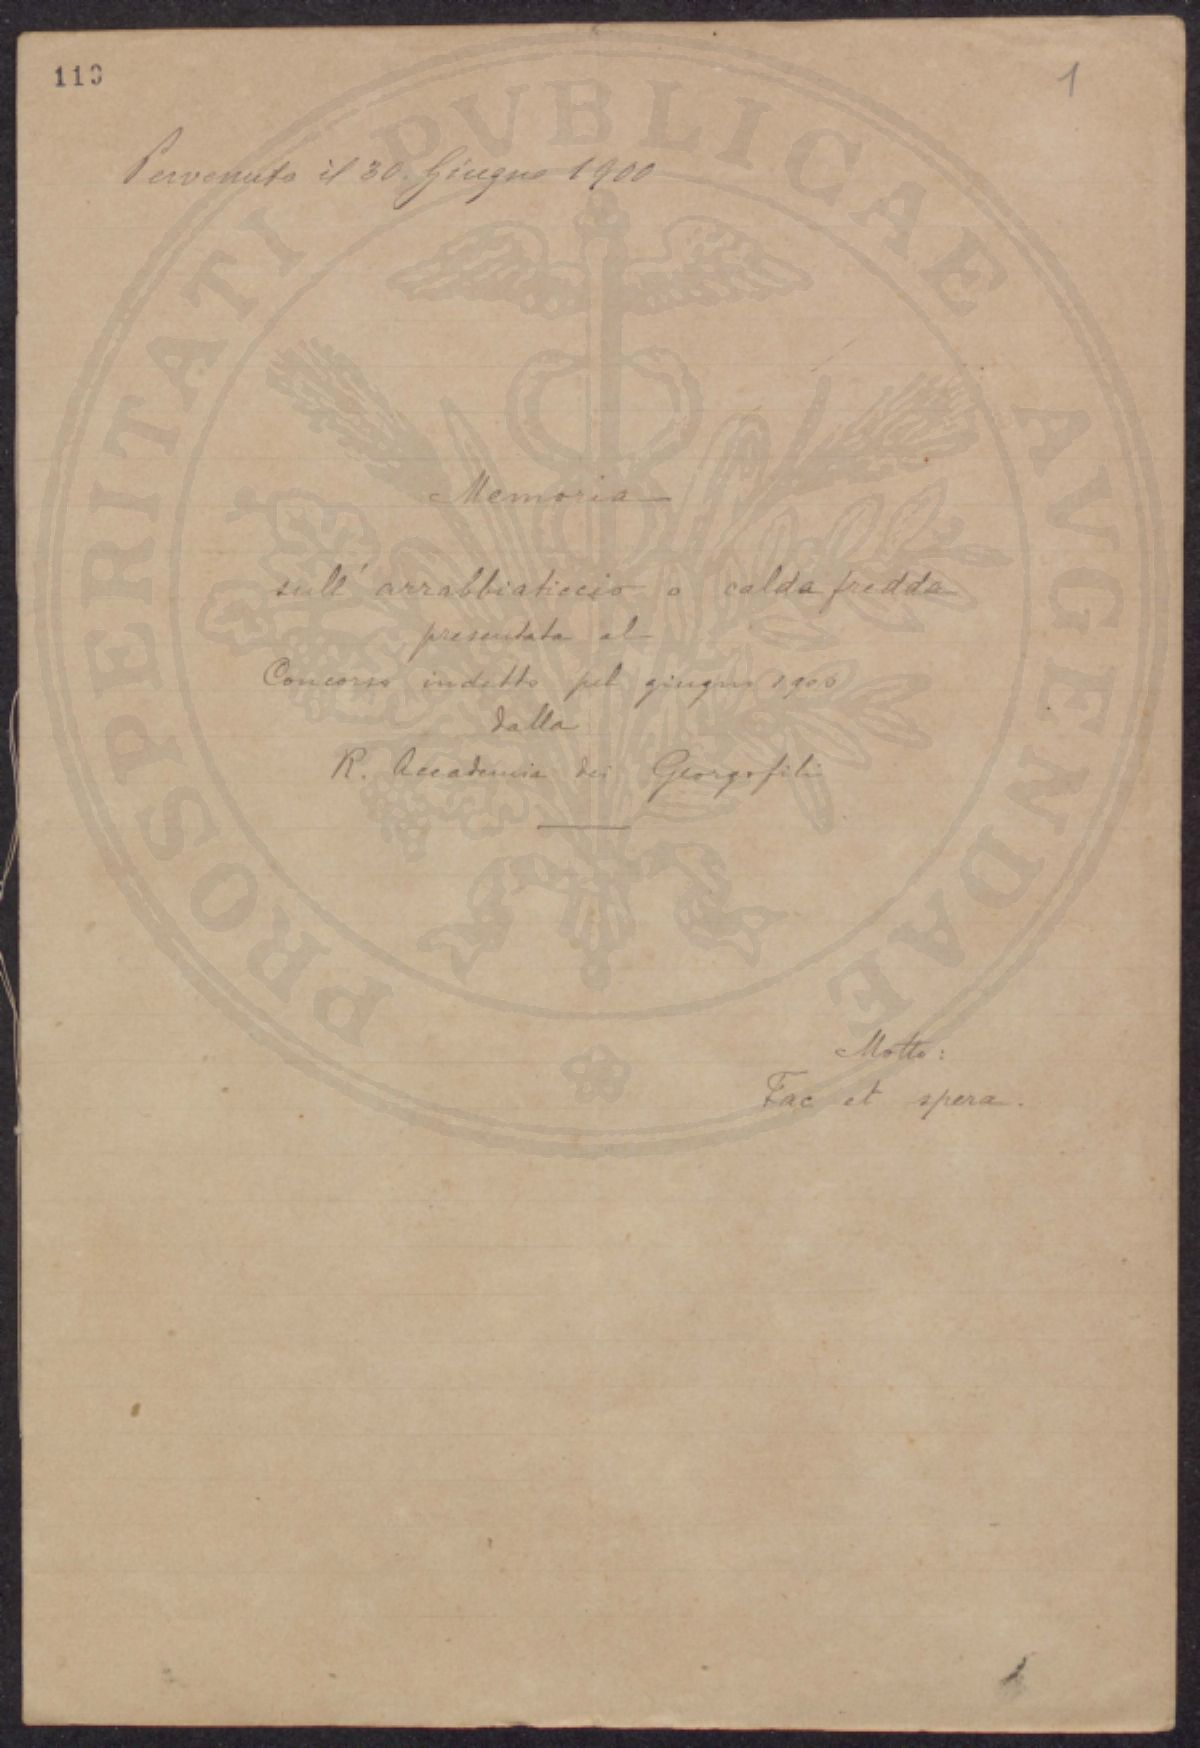 113
1
Pervenuta il 30. Giugno 1900
Memoria
sull' arrabbiaticcio o calda fredda
presentata al
Concorso indetto pel giugno 1900
dalla
R. Accademia dei Georgofili
Motto:
Fac et spera.
PROSPERITATI PVBLICAE AVGENDAE